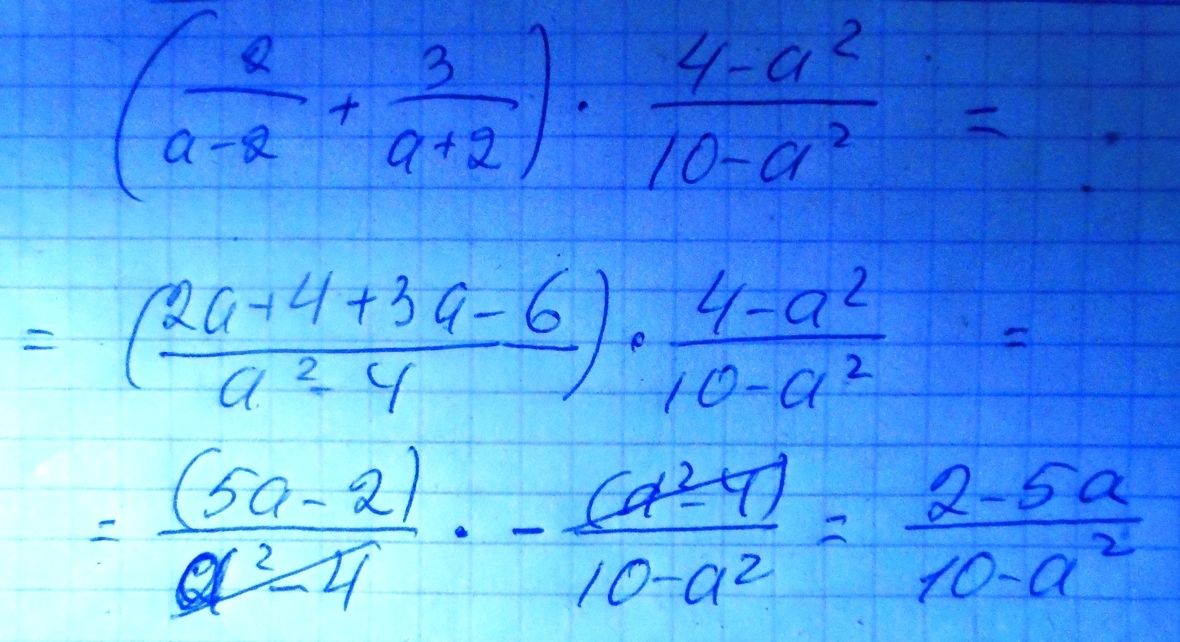 (2/(a-2) + 3/(a+2)) · (4-a²)/(10-a²) =
= ((2a+4+3a-6)/(a²-4)) · (4-a²)/(10-a²) =
= (5a-2)/(a²-4) · -(a²-4)/(10-a²) = (2-5a)/(10-a²)